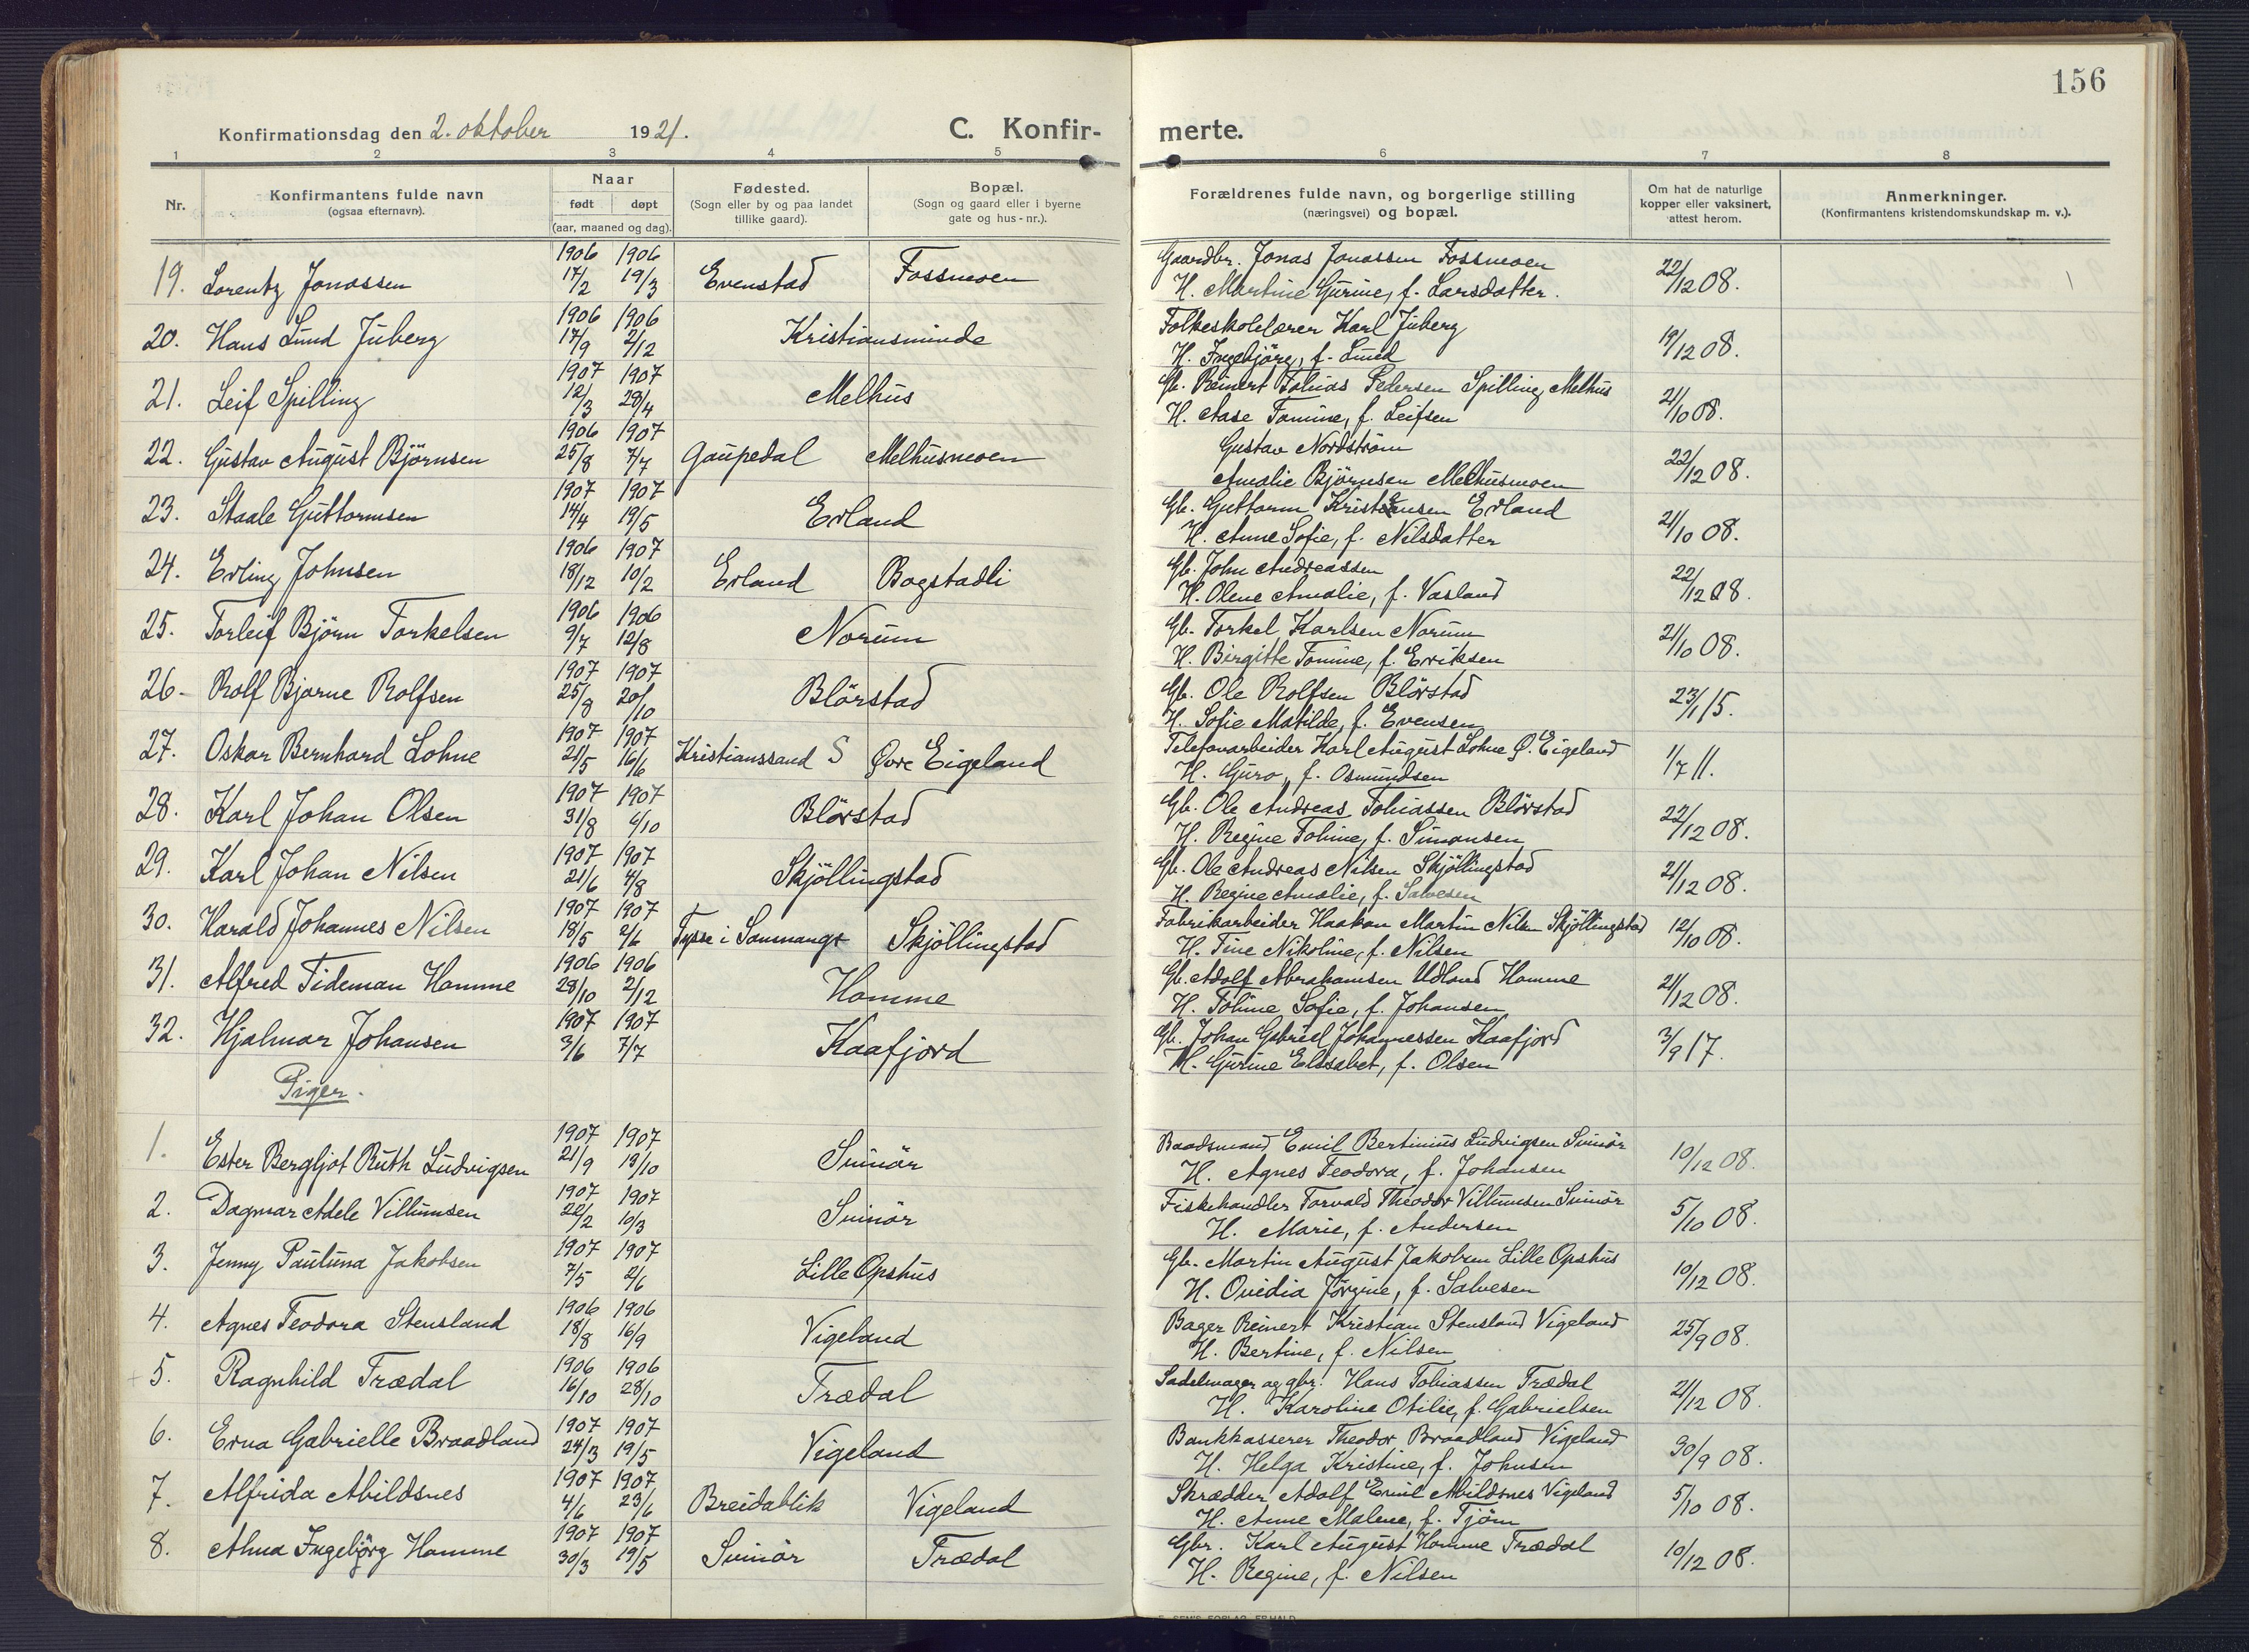 156
Konfirmationsdag den 2. oktober 1921. C. Konfirmerte.
1 2 3 4 5 6 7 8
Nr. Konfirmantens fulde navn (ogsaa efternavn). Naar født døpt (aar, maaned og dag). Fødested. (Sogn eller by og paa landet tillike gaard). Bopæl. (Sogn og gaard eller i byerne gate og hus-nr.). Forældrenes fulde navn, og borgerlige stilling (næringsvei) og bopæl. Om hat de naturlige kopper eller vaksinert, attest herom. Anmerkninger. (Konfirmantens kristendomskundskap m. v.).
19. Lorentz Jonassen 1906 17/2 1906 19/3 Evenstad Fossmoen Gaardbr. Jonas Jonassen Fossmoen
H. Martine Gurine, f. Larsdatter. 22/12 08.
20. Hans Lund Juberg 1906 17/9 1906 2/12 Kristiansminde Folkeskolelærer Karl Juberg
H. Ingebjörg, f. Lund 19/12 08.
21. Leif Spilling 1907 12/3 1907 28/4 Melhus Gb. Reinert Tobias Pedersen Spilling, Melhus
H. Aase Tomine, f. Leifsen 21/10 08.
22. Gustav August Björnsen 1906 25/8 1907 7/7 Gaupedal Melhusmoen Gustav Nordström
Amalie Björnsen Melhusmoen 22/12 08.
23. Staale Guttormsen 1907 14/4 1907 19/5 Erland Gb. Guttorm Kristensen Erland
H. Anne Sofie, f. Nilsdatter 21/10 08.
24. Erling Johnsen 1906 18/12 1907 10/2 Erland Bogstadli Gb. John Andreassen
H. Olene Amalie, f. Vasland 22/12 08.
25. Torleif Björn Torkelsen 1906 9/7 1906 12/8 Norum Gb. Torkel Karlsen Norum
H. Birgitte Tomine, f. Eriksen 21/10 08.
26. Rolf Bjarne Rolfsen 1907 25/8 1907 20/10 Blörstad Gb. Ole Rolfsen Blörstad
H. Sofie Matilde, f. Evensen 23/1 15.
27. Oskar Bernhard Lohne 1907 21/5 1907 16/6 Kristianssand S Övre Eigeland Telefonarbeider Karl August Lohne Ö. Eigeland
H. Guro, f. Osmundsen 1/7 11.
28. Karl Johan Olsen 1907 31/8 1907 6/10 Blörstad Gb. Ole Andreas Tobiassen Blörstad
H. Regine Tobine, f. Simonsen 22/12 08.
29. Karl Johan Nilsen 1907 21/6 1907 4/8 Skjöllingstad Gb. Ole Andreas Nilsen Skjöllingstad
H. Regine Amalie, f. Salvesen 21/12 08.
30. Harald Johannes Nilsen 1907 18/5 1907 2/6 Tysse i Sammanger Skjöllingstad Fabrikarbeider Haakon Martin Nilsen Skjöllingstad
H. Tine Nikoline, f. Nilsen 12/10 08.
31. Alfred Tideman Homme 1906 28/10 1906 2/12 Homme Gb. Adolf Abrahamsen Udland Homme
H. Tobine Sofie, f. Johansen 21/12 08.
32. Hjalmar Johansen 1907 3/6 1907 7/7 Kaafjord Gb. Johan Gabriel Johannessen Kaafjord
H. Gurine Elisabet, f. Olsen 3/9 17.
Piger.
1. Ester Bergljot Ruth Ludvigsen 1907 21/9 1907 13/10 Svinör Baadsmand Emil Bertinius Ludvigsen Svinör
H. Agnes Teodora, f. Johansen 10/12 08.
2. Dagmar Adele Villumsen 1907 22/2 1907 10/3 Svinör Fiskehandler Torvald Theodor Villumsen Svinör
H. Marie, f. Andersen 5/10 08.
3. Jenny Pauluna Jakobsen 1907 7/5 1907 2/6 Lille Opshus Gb. Martin August Jakobsen Lille Opshus
H. Ovidia Jörgine, f. Salvesen 10/12 08.
4. Agnes Teodora Stensland 1906 18/8 1906 16/9 Vigeland Bager Reinert Kristian Stensland Vigeland
H. Bertine, f. Nilsen 25/9 08.
5. Ragnhild Trædal 1906 16/10 1906 28/10 Trædal Sadelmager og gbr. Hans Tobiassen Trædal
H. Karoline Otilie, f. Gabrielsen 21/12 08.
6. Erna Gabrielle Braadland 1907 24/3 1907 19/5 Vigeland Bankkasserer Theodor Braadland Vigeland
H. Helga Kristine, f. Johnsen 30/9 08.
7. Alfrida Abildsnes 1907 4/6 1907 23/6 Breidablik Vigeland Skrædder Adolf Emil Abildsnes Vigeland
H. Anne Malene, f. Tjöm 5/10 08.
8. Alma Ingebjörg Homme 1907 30/3 1907 19/5 Svinör Trædal Gbr. Karl August Homme Trædal
H. Regine, f. Nilsen 10/12 08.